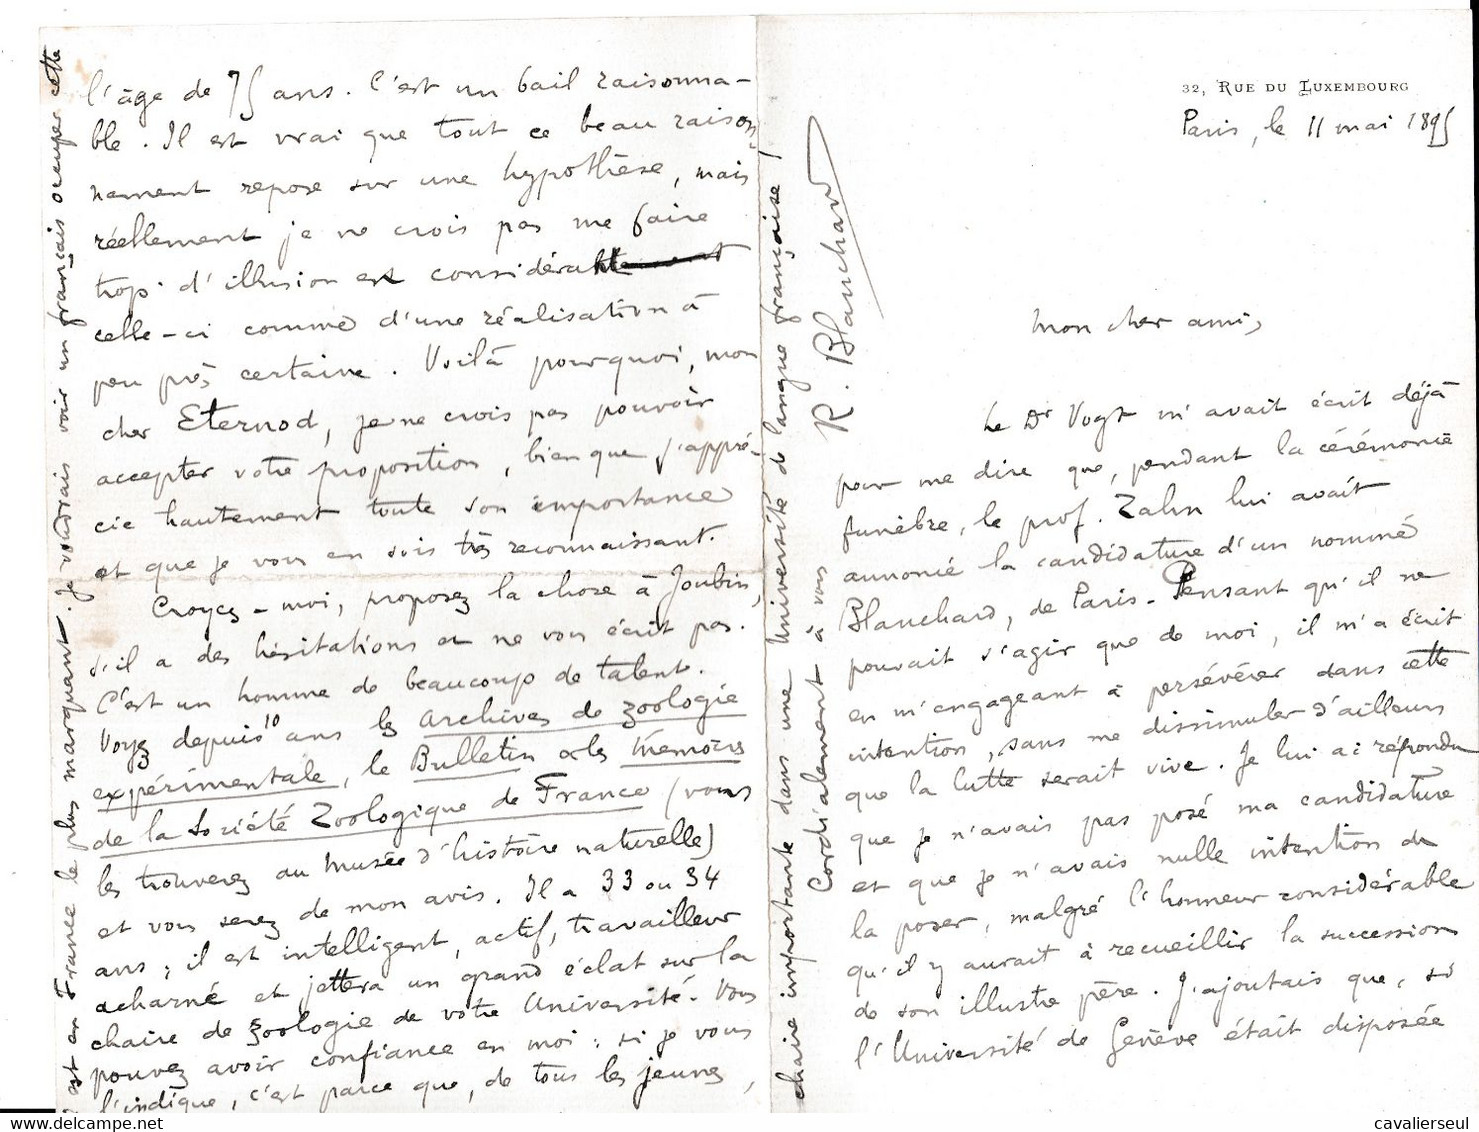 32, RUE DU LUXEMBOURG
Paris, le 11 mai 1895
Mon cher ami,
Le Dr Vogt m'avait écrit déjà
pour me dire que, pendant la cérémonie
funèbre, le prof. Zahn lui avait
annoncé la candidature d'un nommé
Blanchard, de Paris. Pensant qu'il ne
pouvait s'agir que de moi, il m'a écrit
en m'engageant à persévérer dans cette
intention, sans me dissimuler d'ailleurs
que la lutte serait vive. Je lui ai répondu
que je n'avais pas posé ma candidature
et que je n'avais nulle intention de
la poser, malgré l'honneur considérable
qu'il y aurait à recueillir la succession
de son illustre père. J'ajoutais que, si
l'Université de Genève était disposée
l'âge de 75 ans. C'est un bail raisonna-
ble. Il est vrai que tout ce beau raison-
nement repose sur une hypothèse, mais
réellement je ne crois pas me faire
trop d'illusion en considérant
celle-ci comme d'une réalisation à
peu près certaine. Voilà pourquoi, mon
cher Eternod, je ne crois pas pouvoir
accepter votre proposition, bien que j'appré-
cie hautement toute son importance
et que je vous en sois très reconnaissant.
Croyez-moi, proposez la chose à Joubin,
s'il a des hésitations et ne vous écrit pas.
C'est un homme de beaucoup de talent.
Voyez depuis 10 ans les Archives de Zoologie
expérimentale, le Bulletin et les Mémoires
de la Société Zoologique de France (vous
les trouverez au Musée d'histoire naturelle)
et vous serez de mon avis. Il a 33 ou 34
ans ; il est intelligent, actif, travailleur
acharné et jettera un grand éclat sur la
chaire de Zoologie de votre Université. Vous
pouvez avoir confiance en moi : si je vous
l'indique, c'est parce que, de tous les jeunes,
est en France le plus marquant. Je voudrais voir un français occuper cette
chaire importante dans une Université de langue française !
Cordialement à vous
R. Blanchard
cavalierseul